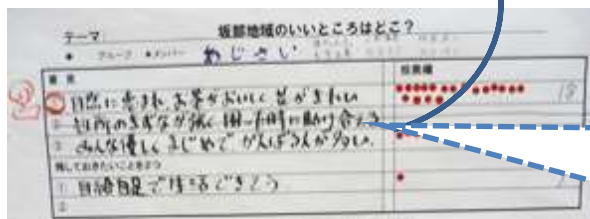 テーマ 坂部地域のいいところはどこ?
グループ メンバー あじさい
意見 投票欄
① 自然に恵まれ お茶がおいしく 苔がきれい 18
② 近所のきずなが強く 困った時に助け合える
③ みんな優しく まじめで がんばる人が多い。
残しておきたいことを2つ
① 自給自足で生活できそう
②